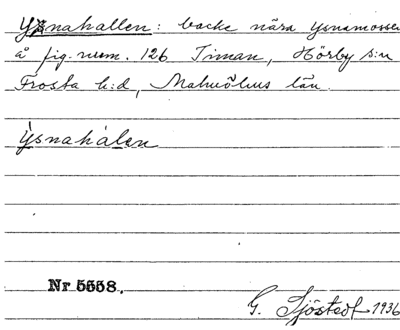 Ysnahallen: backe nära Ysnamossen
å fig.num. 126 Timan, Hörby s:n
Frosta h:d, Malmöhus län.
ỳsnahálen
Nr 5558.
G. Sjöstedt 1936